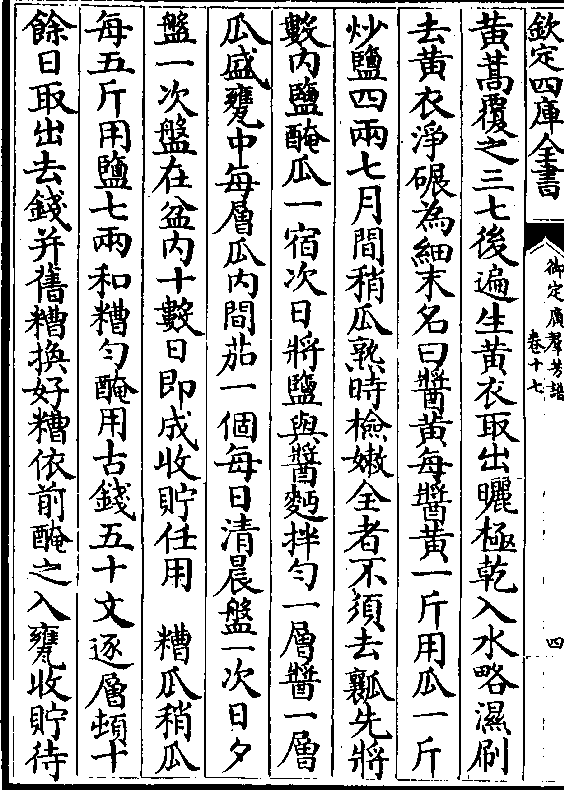 欽定四庫全書
御定廣羣芳譜
卷十七
四
黃蒿覆之三七後遍生黃衣取出曬極乾入水略濕刷
去黃衣淨碾為細末名曰醬黃每醬黃一斤用瓜一斤
炒鹽四兩七月間稍瓜熟時檢嫩全者不須去瓤先將
數內鹽醃瓜一宿次日將鹽與醬麪拌勻一層醬一層
瓜盛甕中每層瓜內間茄一個每日清晨盤一次日夕
盤一次盤在盆內十數日即成收貯任用　糟瓜稍瓜
每五斤用鹽七兩和糟勻醃用古錢五十文逐層頓十
餘日取出去錢并舊糟換好糟依前醃之入甕收貯待